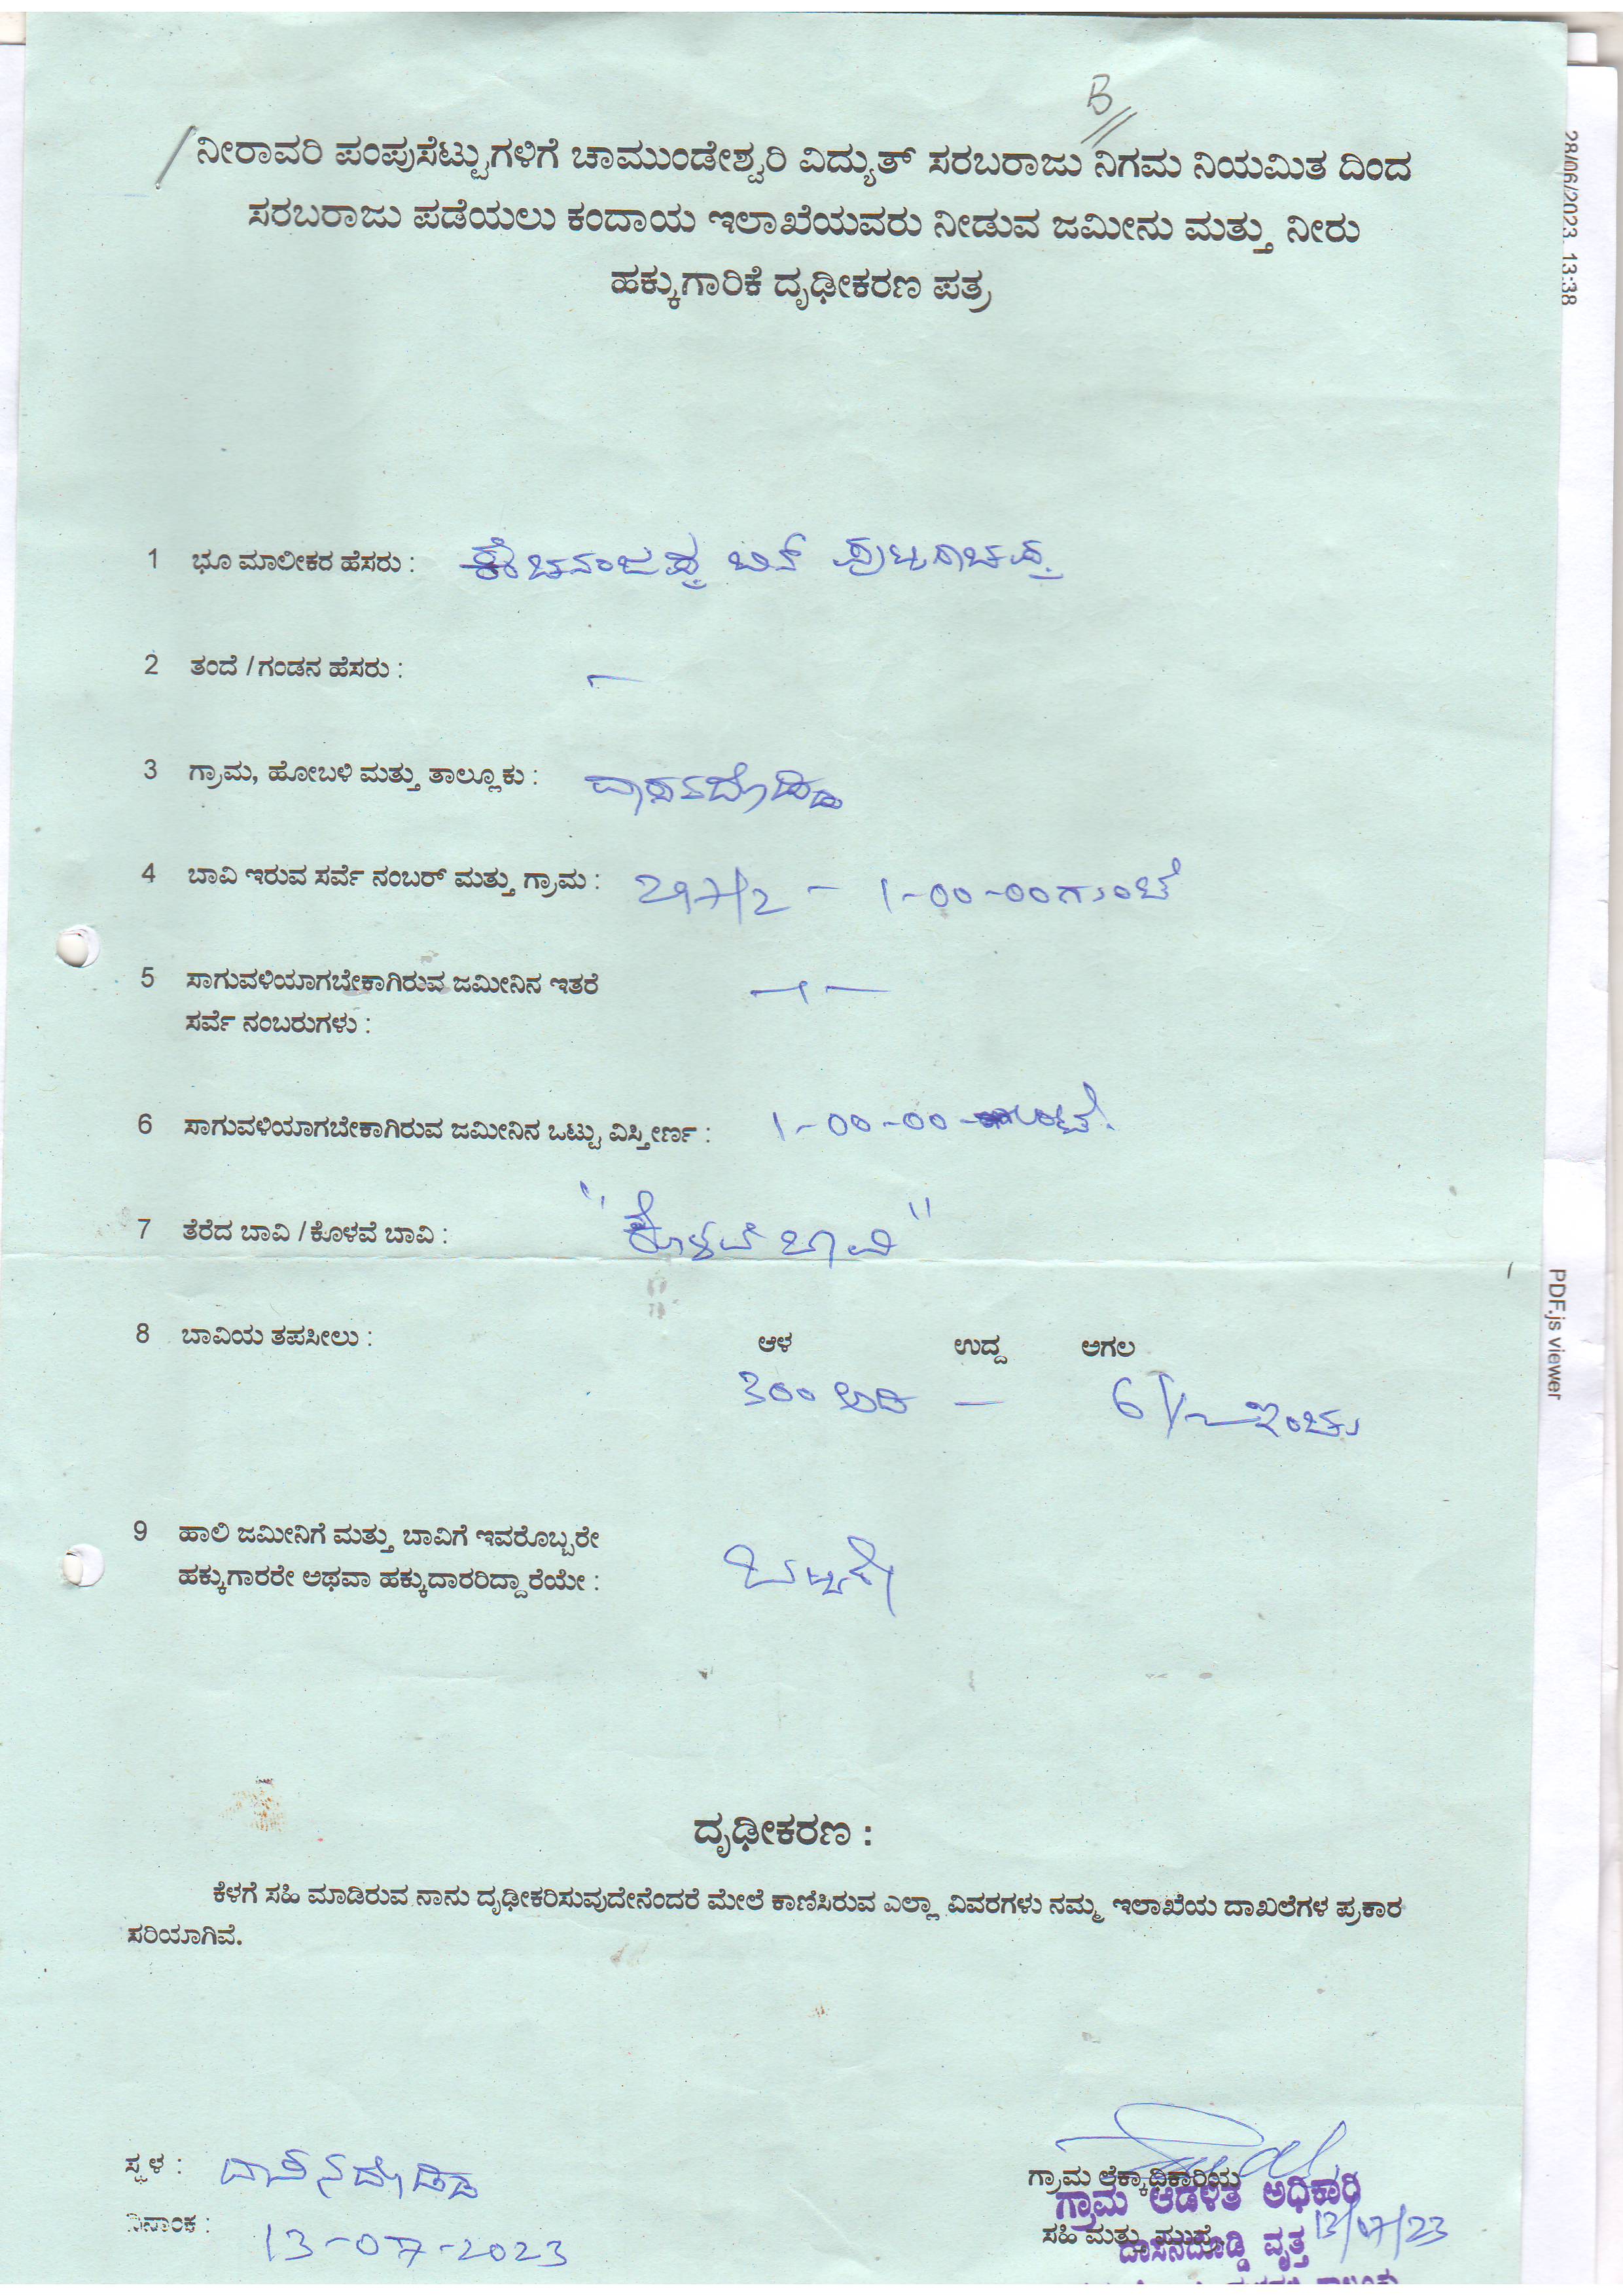 B
ನೀರಾವರಿ ಪಂಪುಸೆಟ್ಟುಗಳಿಗೆ ಚಾಮುಂಡೇಶ್ವರಿ ವಿದ್ಯುತ್ ಸರಬರಾಜು ನಿಗಮ ನಿಯಮಿತ ದಿಂದ
ಸರಬರಾಜು ಪಡೆಯಲು ಕಂದಾಯ ಇಲಾಖೆಯವರು ನೀಡುವ ಜಮೀನು ಮತ್ತು ನೀರು
ಹಕ್ಕುಗಾರಿಕೆ ದೃಢೀಕರಣ ಪತ್ರ
28/06/2023, 13:38
1 ಭೂ ಮಾಲೀಕರ ಹೆಸರು : ಬಿನ್
2 ತಂದೆ / ಗಂಡನ ಹೆಸರು : –
3 ಗ್ರಾಮ, ಹೋಬಳಿ ಮತ್ತು ತಾಲ್ಲೂಕು :
4 ಬಾವಿ ಇರುವ ಸರ್ವೆ ನಂಬರ್ ಮತ್ತು ಗ್ರಾಮ : 297/2 – 1-00-00 ಗುಂಟೆ
5 ಸಾಗುವಳಿಯಾಗಬೇಕಾಗಿರುವ ಜಮೀನಿನ ಇತರೆ
ಸರ್ವೆ ನಂಬರುಗಳು :
6 ಸಾಗುವಳಿಯಾಗಬೇಕಾಗಿರುವ ಜಮೀನಿನ ಒಟ್ಟು ವಿಸ್ತೀರ್ಣ : 1-00-00 ಗುಂಟೆ.
7 ತೆರೆದ ಬಾವಿ / ಕೊಳವೆ ಬಾವಿ : "ಕೊಳವೆ ಬಾವಿ"
PDF.js viewer
8 ಬಾವಿಯ ತಪಸೀಲು : ಆಳ ಉದ್ದ ಅಗಲ
300 ಅಡಿ – 6 1/2 ಇಂಚು
9 ಹಾಲಿ ಜಮೀನಿಗೆ ಮತ್ತು ಬಾವಿಗೆ ಇವರೊಬ್ಬರೇ
ಹಕ್ಕುಗಾರರೇ ಅಥವಾ ಹಕ್ಕುದಾರರಿದ್ದಾರೆಯೇ : ಒಬ್ಬರೇ
ದೃಢೀಕರಣ :
ಕೆಳಗೆ ಸಹಿ ಮಾಡಿರುವ ನಾನು ದೃಢೀಕರಿಸುವುದೇನೆಂದರೆ ಮೇಲೆ ಕಾಣಿಸಿರುವ ಎಲ್ಲಾ ವಿವರಗಳು ನಮ್ಮ ಇಲಾಖೆಯ ದಾಖಲೆಗಳ ಪ್ರಕಾರ
ಸರಿಯಾಗಿವೆ.
ಸ್ಥಳ : ದಾಸನದೊಡ್ಡಿ
ದಿನಾಂಕ : 13-07-2023
ಗ್ರಾಮ ಲೆಕ್ಕಾಧಿಕಾರಿಯ
ಗ್ರಾಮ ಆಡಳಿತ ಅಧಿಕಾರಿ
ಸಹಿ ಮತ್ತು ಮುದ್ರೆ 13/07/23
ದಾಸನದೊಡ್ಡಿ ವೃತ್ತ